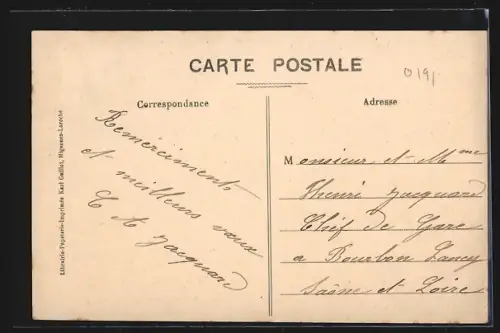 CARTE POSTALE
0191
Correspondance
Adresse
Remerciements
et meilleurs vœux
E A Jacquard
Monsieur et Mme
Henri Jacquard
Chef de Gare
a Bourbon Lancy
Saône et Loire
Librairie-Papeterie-Imprimée Karl Guillot, Migennes-Laroche